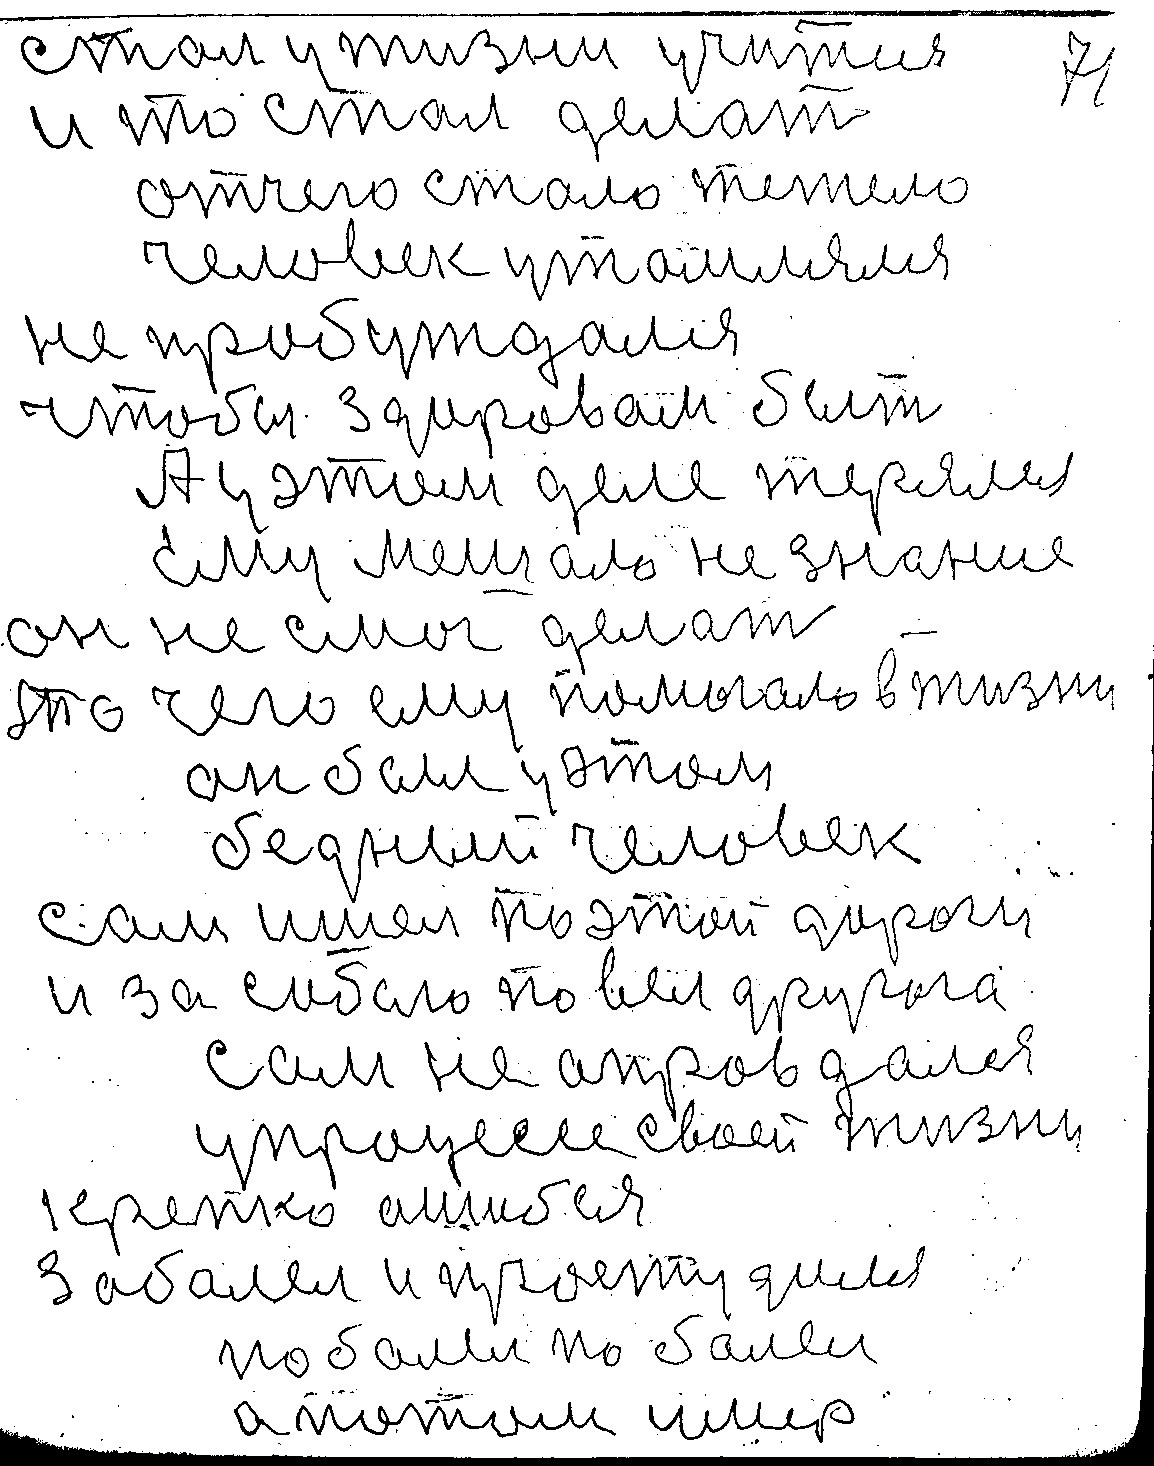 стал у жизни учится 71
и то стал делат
отчего стало тежело
человек утомлялся
не пробуждался
чтобы здировам быт
А у этом деле терялся
ему мешало не знание
он не смог делат
это чего ему помогало в жизни
он был у этом
бедный человек
сам ишел по этой дороги
и за собою по вел другога
сам не оправдался
упроцесе своей жизни
крепко ошибся
заболел и простудился
поболел по болел
а потом имер